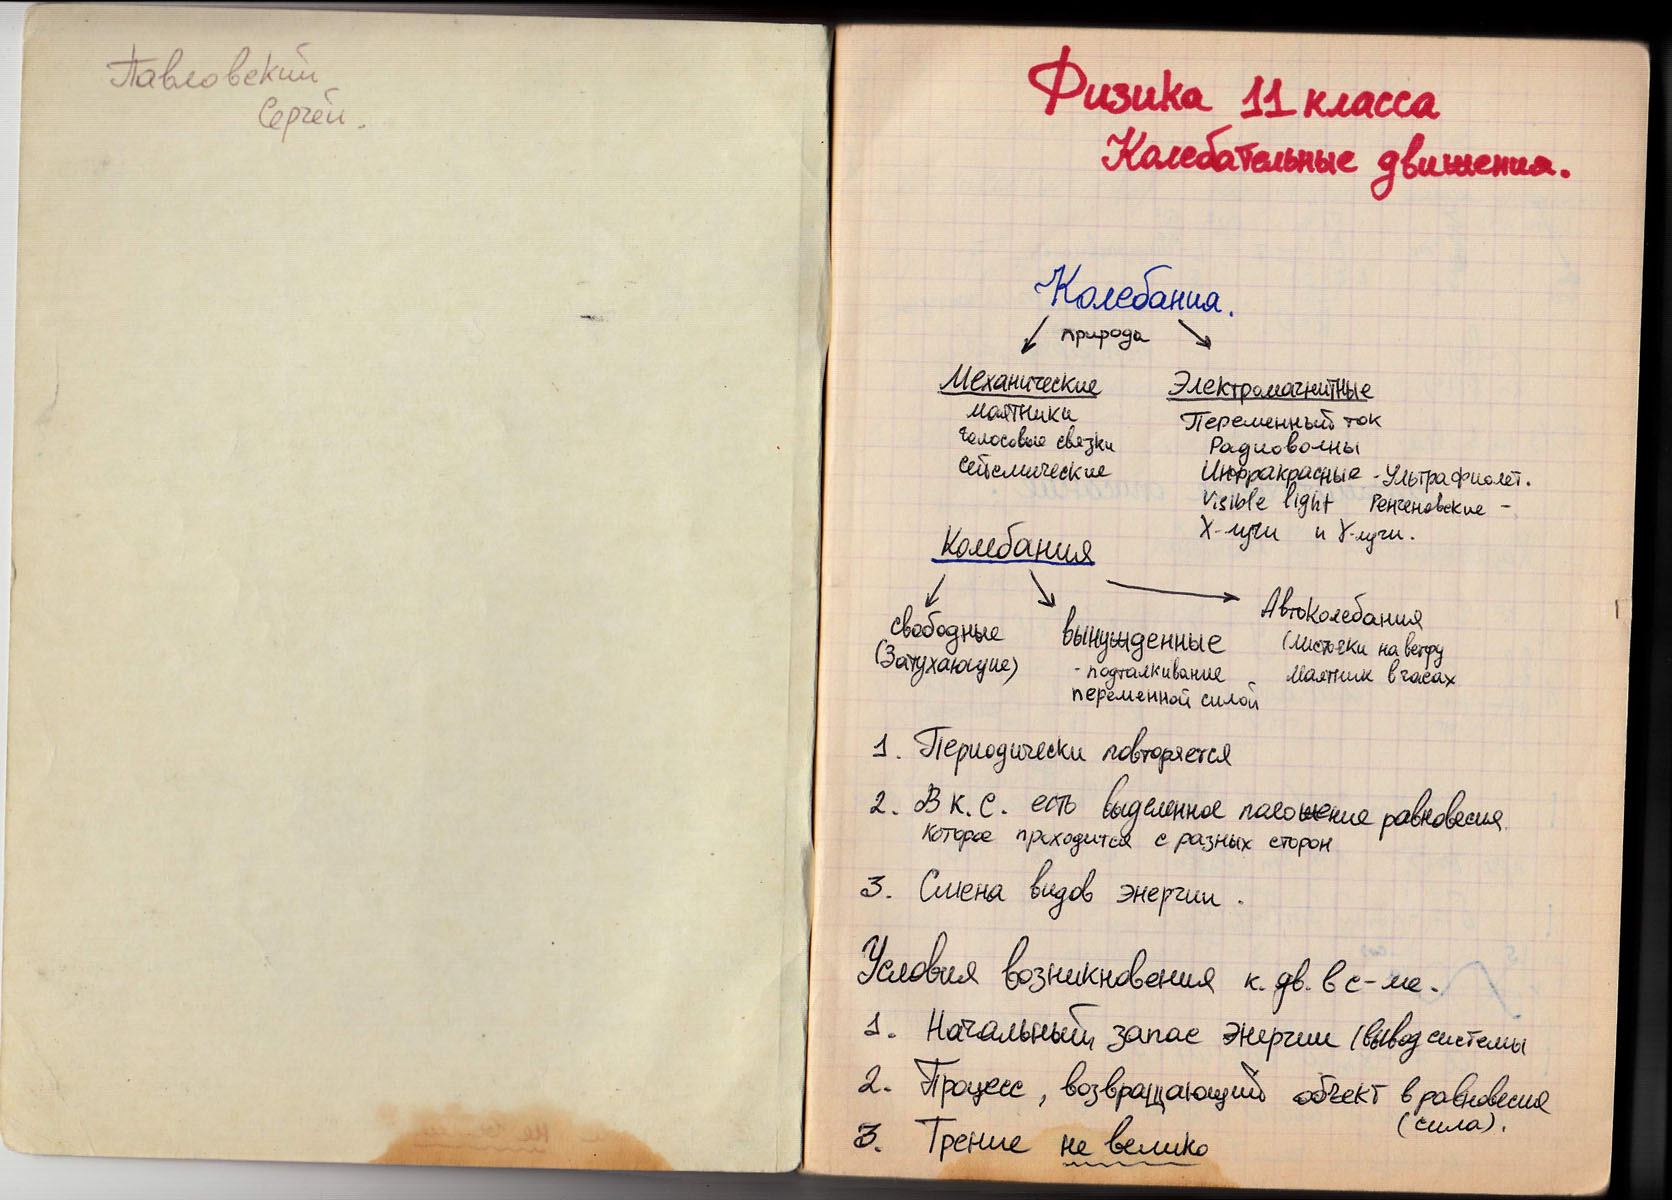 Павловский
Сергей.
Физика 11 класса
Колебательные движения.
Колебания.
природа
Механические
маятники
голосовые связки
сейсмические
Электромагнитные
Переменный ток
Радиоволны
Инфракрасные - Ультрафиолет.
Visible light Ренгеновские -
X-лучи и γ-лучи.
Колебания
свободные
(Затухающие)
вынужденные
- подталкивание
переменной силой
Автоколебания
(листочки на ветру
маятник в часах
1. Периодически повторяется
2. В к. с. есть выделенное положение равновесия
которое проходится с разных сторон
3. Смена видов энергии.
Условия возникновения к. дв. в с-ме.
1. Начальный запас энергии (вывод системы
2. Процесс, возвращающий объект в равновесия
(сила).
3. Трение не велико